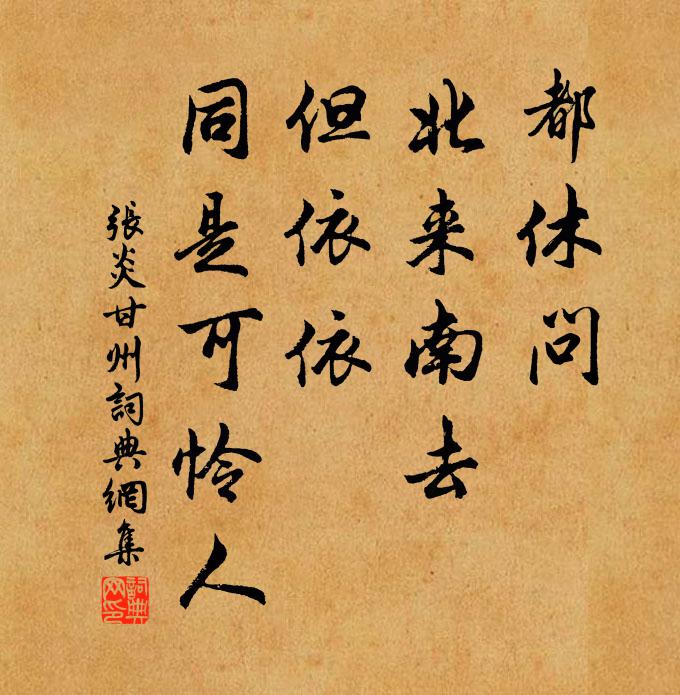 都休问
北来南去
但依依
同是可怜人
張炎甘州詞典網集
詞典網印